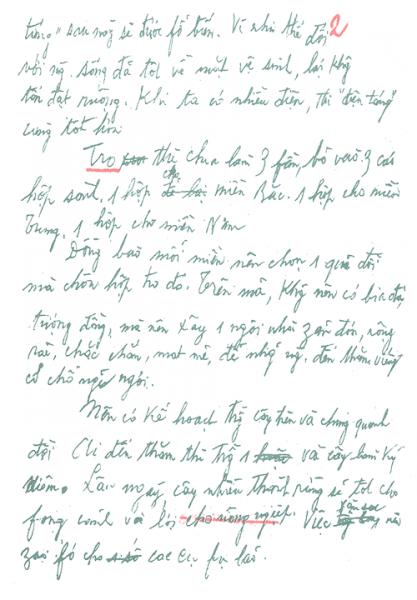 2
táng" sau này sẽ được fổ biến. Vì như thế đối
với ng. sống đã tốt về mặt vệ sinh, lại khg
tốn đất ruộng. Khi ta có nhiều điện, thì "điện táng"
càng tốt hơn.
Tro thì chia làm 3 fần, bỏ vào 3 cái
hộp sành, 1 hộp cho miền Bắc. 1 hộp cho miền
Trung. 1 hộp cho miền Nam
Đồng bào mỗi miền nên chọn 1 quả đồi
mà chôn hộp tro đó. Trên mả, khg nên có bia đá,
tượng đồng, mà nên xây 1 ngôi nhà zản đơn, rộng
rãi, chắc chắn, mát mẻ, để nhg ng. đến thăm viếng
có chỗ nghỉ ngơi.
Nên có kế hoạch trg cây trên và chung quanh
đồi. Ai đến thăm thì trg 1 và cây làm kỷ
niệm. Lâu ngày cây nhiều thành rừng sẽ tốt cho
fong cảnh và lợi cho nông nghiệp. Việc săn sóc nên
zao fó cho các cụ fụ lão.